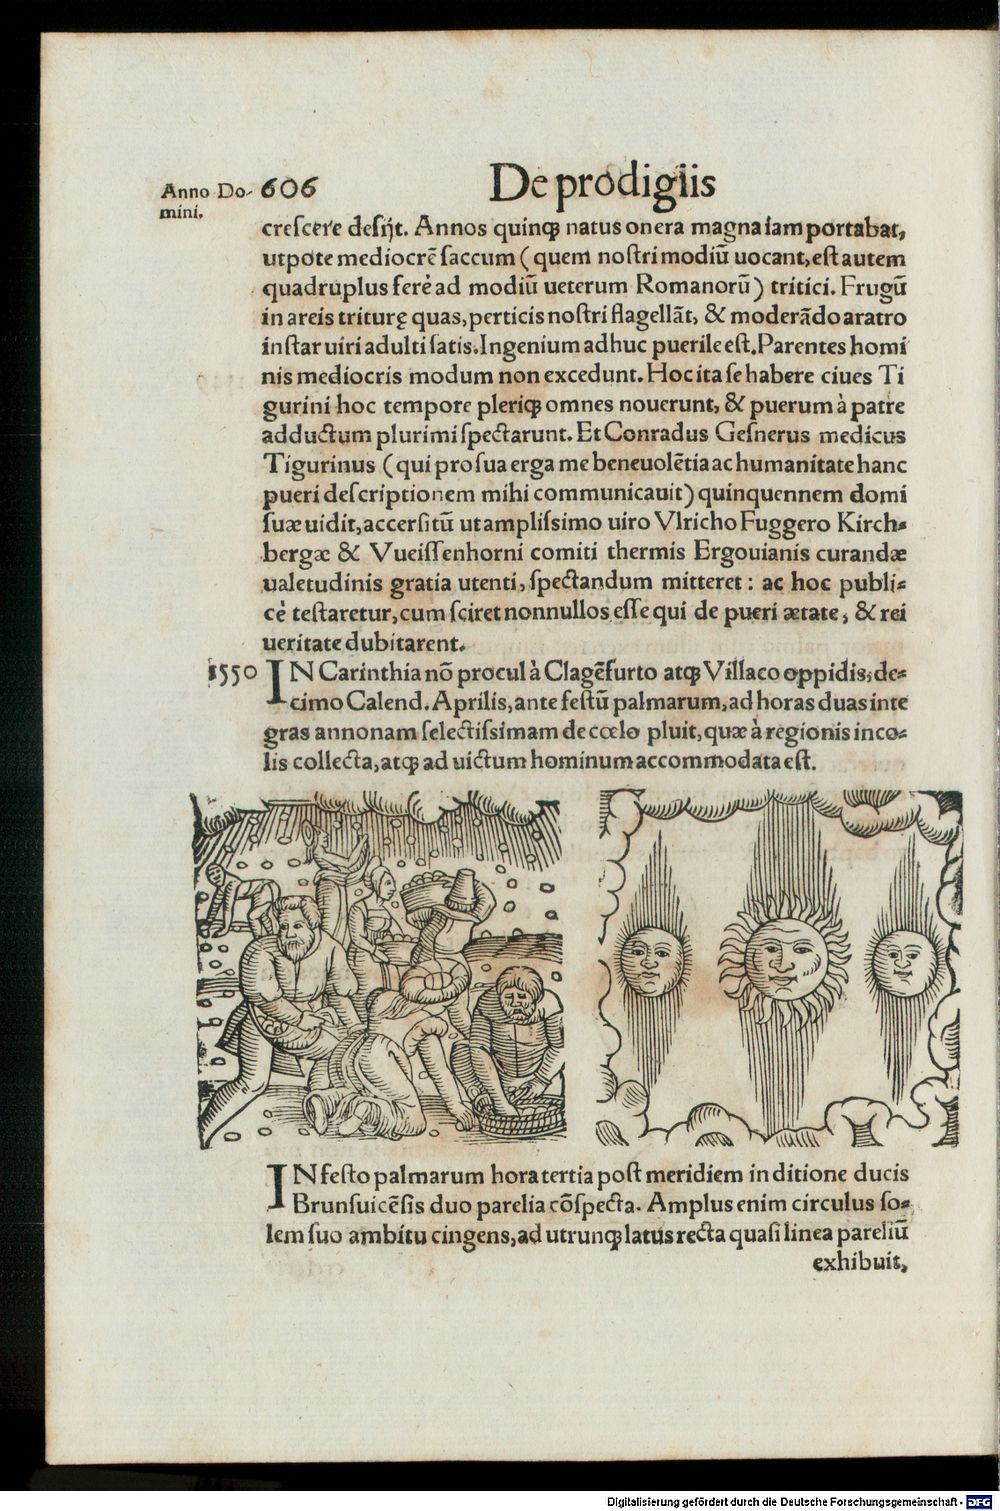 Anno Do- 606 De prodigiis
mini.
creſcere deſijt. Annos quinqꝫ natus onera magna iam portabat,
utpote mediocrē ſaccum (quem noſtri modiū uocant, eſt autem
quadruplus ferè ad modiū ueterum Romanorū) tritici. Frugū
in areis triturę quas, perticis noſtri flagellāt, & moderādo aratro
inſtar uiri adulti ſatis. Ingenium adhuc puerile eſt. Parentes homi
nis mediocris modum non excedunt. Hoc ita ſe habere ciues Ti
gurini hoc tempore pleriqꝫ omnes nouerunt, & puerum à patre
adductum plurimi ſpectarunt. Et Conradus Geſnerus medicus
Tigurinus (qui pro ſua erga me beneuolētia ac humanitate hanc
pueri deſcriptionem mihi communicauit) quinquennem domi
ſuæ uidit, accerſitū ut ampliſsimo uiro Vlricho Fuggero Kirch-
bergæ & Vueiſſenhorni comiti thermis Ergouianis curandæ
ualetudinis gratia utenti, ſpectandum mitteret: ac hoc publi-
cè teſtaretur, cum ſciret nonnullos eſſe qui de pueri ætate, & rei
ueritate dubitarent.
1550 IN Carinthia nō procul à Clagēfurto atqꝫ Villaco oppidis, de-
cimo Calend. Aprilis, ante feſtū palmarum, ad horas duas inte
gras annonam ſelectiſsimam de cœlo pluit, quæ à regionis inco-
lis collecta, atqꝫ ad uictum hominum accommodata eſt.
IN feſto palmarum hora tertia poſt meridiem in ditione ducis
Brunſuicēſis duo parelia cōſpecta. Amplus enim circulus ſo-
lem ſuo ambitu cingens, ad utrunqꝫ latus recta quaſi linea pareliū
exhibuit,
Digitalisierung gefördert durch die Deutsche Forschungsgemeinschaft - DFG